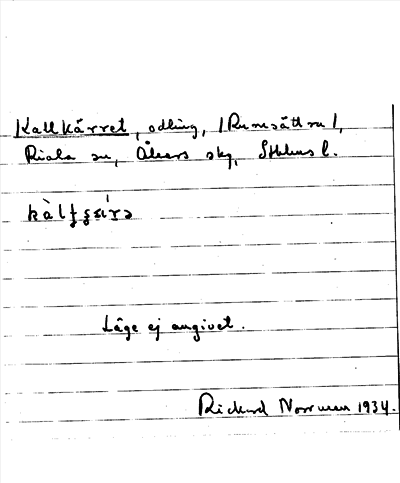 Kallkärret, odling, (Rumsättra),
Riala sn, Åkers skg, Sthlms l.
Läge ej angivet.
Rickard Norrman 1934.